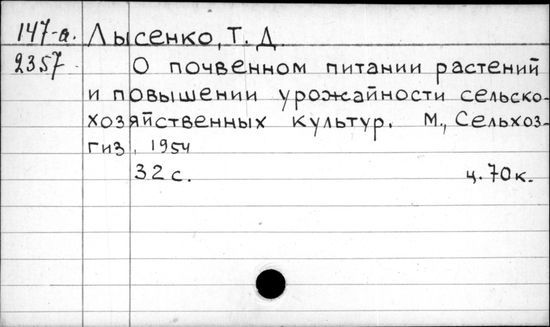 147-а. Лысенко, Т. Д.
2357. О почвенном питании растений
и повышении урожайности сельско-
хозяйственных культур. М., Сельхоз-
гиз, 1954
32 с. ц. 70 к.